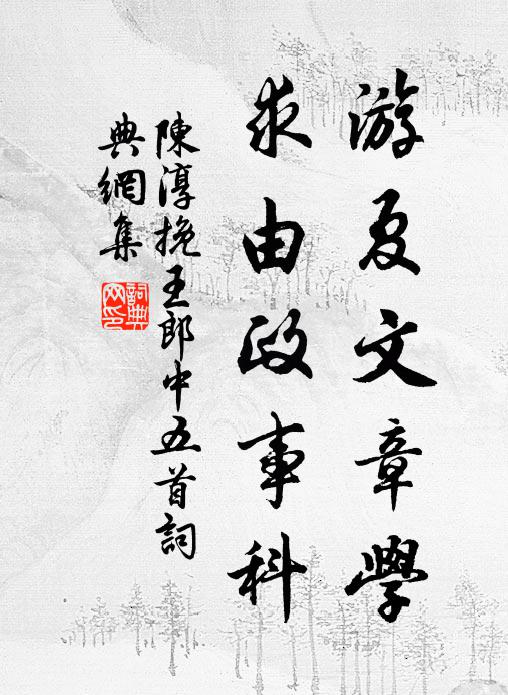 游夏文章學
求由政事科
陳淳挽王郎中五首詞
典網集
詞典
网印